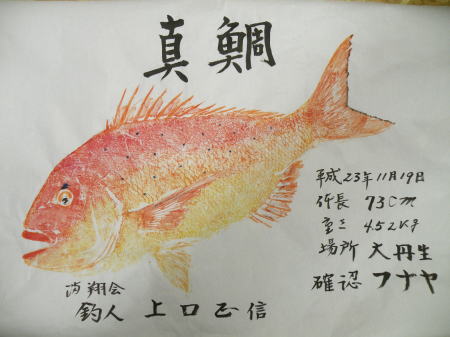 真鯛
平成23年11月19日
体長 73cm
重さ 4.52kg
場所 大丹生
確認 フナヤ
翔会
釣人 上口正信